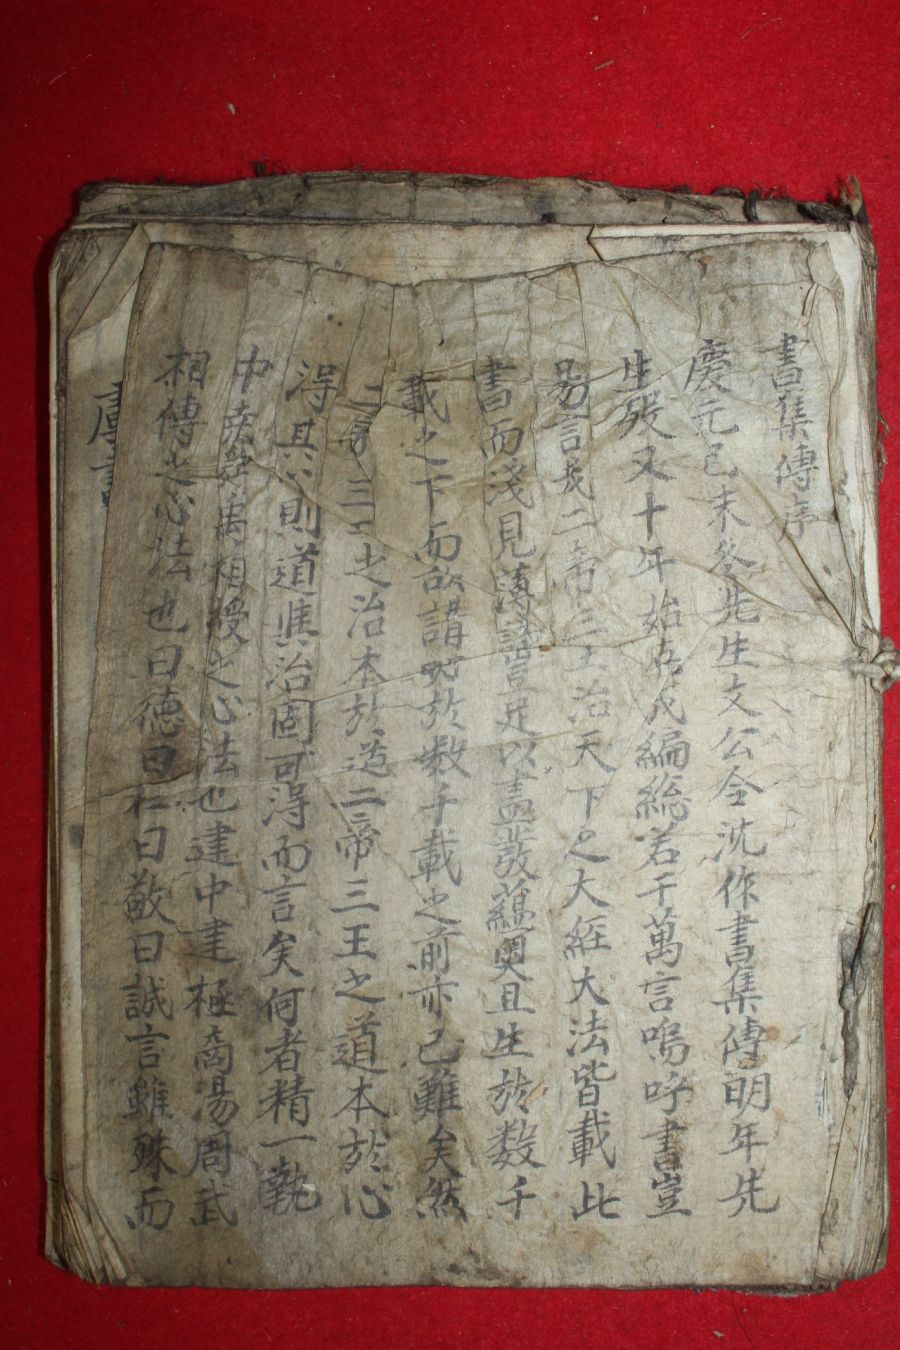 書集傳序
慶元已未冬先生文公令沈作書集傳明年先
生歿又十年始克成編總若干萬言嗚呼書豈
易言哉二帝三王治天下之大經大法皆載此
書而淺見薄識豈足以盡發蘊奧且生於数千
載之下而欲講明於数千載之前亦已難矣然
二帝三王之治本於道二帝三王之道本於心
淂其心則道與治固可淂而言矣何者精一執
中堯舜禹相授之心法也建中建極商湯周武
相傳之心法也曰德曰仁曰敬曰誠言雖殊而
虞書